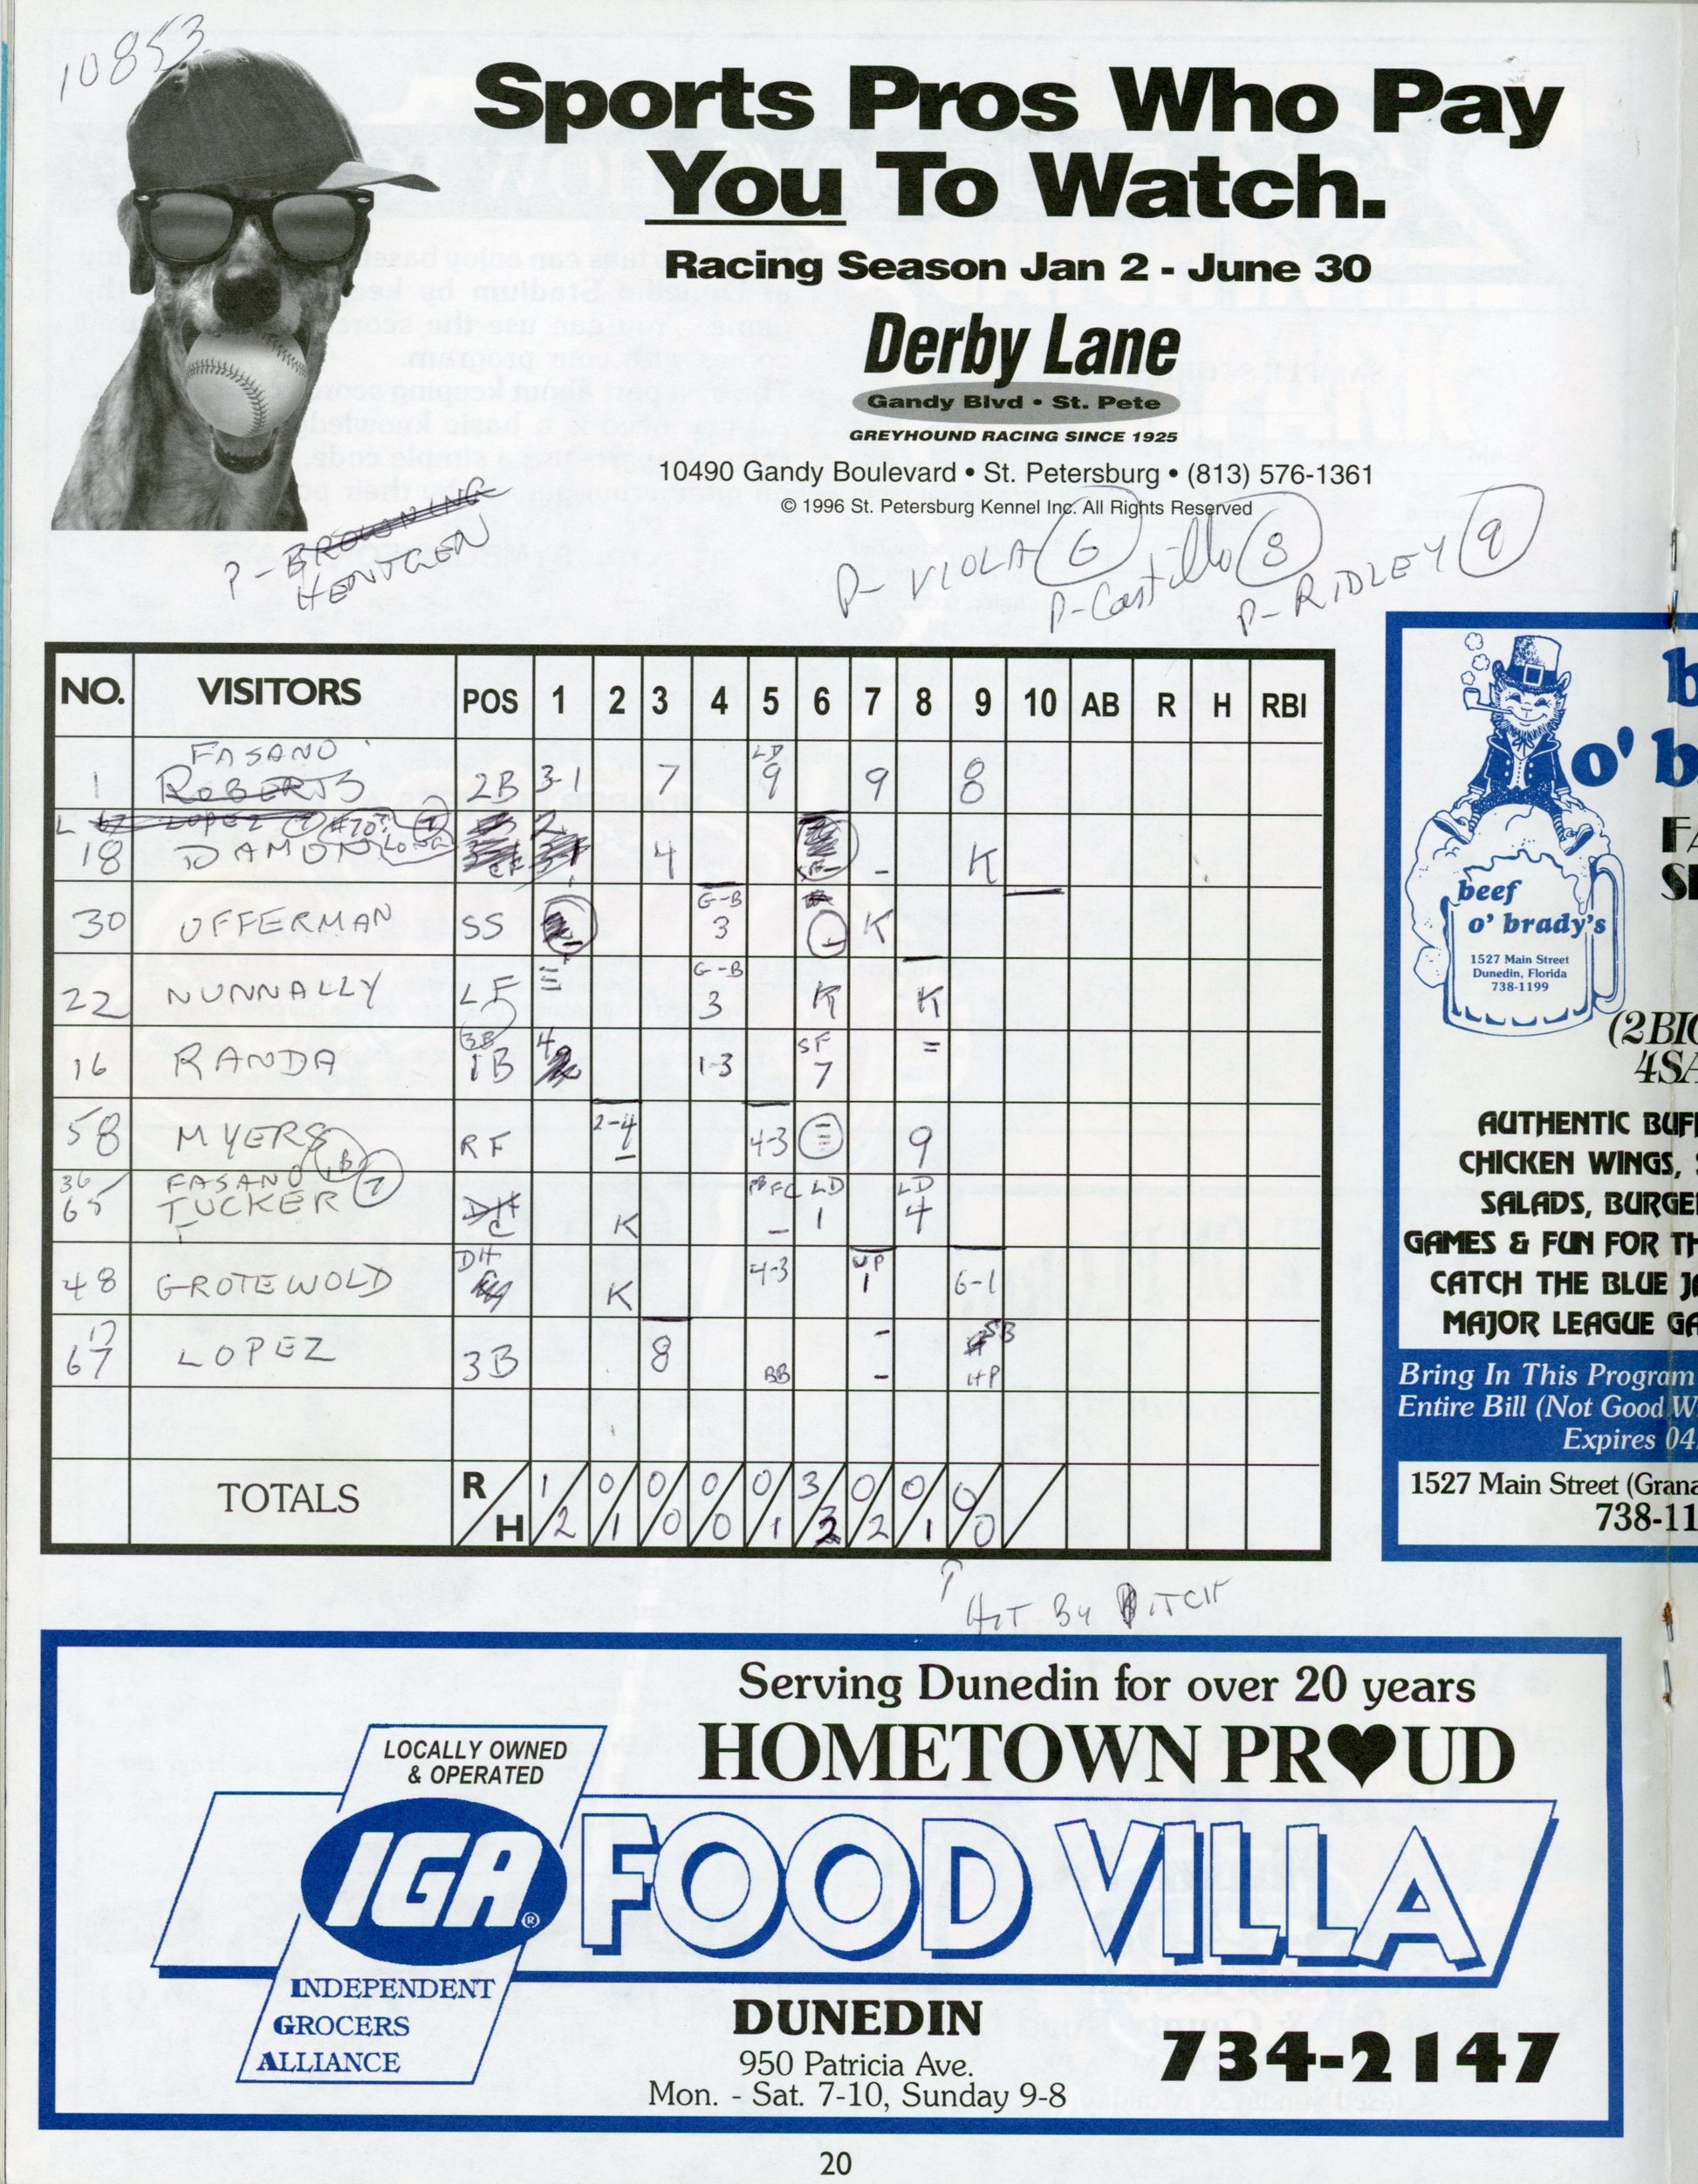 10853
Sports Pros Who Pay
You To Watch.
Racing Season Jan 2 - June 30
Derby Lane
Gandy Blvd • St. Pete
GREYHOUND RACING SINCE 1925
10490 Gandy Boulevard • St. Petersburg • (813) 576-1361
© 1996 St. Petersburg Kennel Inc. All Rights Reserved
P- BROWNING
HENTGEN
P- VIOLA 6
P- Castillo 8
P- RIDLEY 9
NO. VISITORS POS 1 2 3 4 5 6 7 8 9 10 AB R H RBI
FASANO LD
1 ROBERTS 2B 3-1 7 9 9 8
L 67 LOPEZ 2
18 DAMON CF 4 SF - K
30 OFFERMAN SS G-B 3 K
22 NUNNALLY LF G-B 3 K K
16 RANDA 3B 1B 4 1-3 SF 7 =
58 MYERS RF 2-4 4-3 9
36 FASANO 7 FC LD LD
65 TUCKER DH C K - 1 4
48 GROTEWOLD DH K 4-3 UP 1 6-1
17
67 LOPEZ 3B 8 BB - - SB HP
TOTALS R/H 1/2 0/1 0/0 0/0 0/1 3/2 0/2 0/1 0/0
HIT By PITCH
b
o' b
FA
SE
beef
o' brady's
1527 Main Street
Dunedin, Florida
738-1199
(2BIG
4SA
AUTHENTIC BUF
CHICKEN WINGS,
SALADS, BURGE
GAMES & FUN FOR TH
CATCH THE BLUE J
MAJOR LEAGUE GA
Bring In This Program
Entire Bill (Not Good W
Expires 04
1527 Main Street (Grana
738-11
Serving Dunedin for over 20 years
HOMETOWN PR♥UD
LOCALLY OWNED
& OPERATED
IGA ®
FOOD VILLA
INDEPENDENT
GROCERS
ALLIANCE
DUNEDIN
950 Patricia Ave.
Mon. - Sat. 7-10, Sunday 9-8
734-2147
20